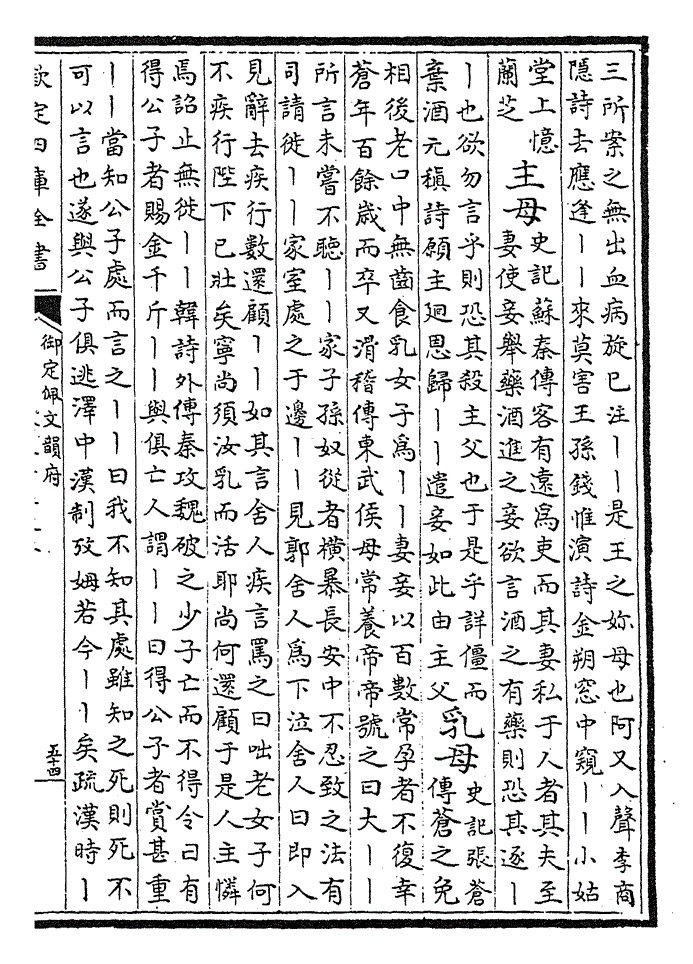 三所案之無出血病旋已注丨丨是王之妳母也阿又入聲李商
隱詩去應逢丨丨來莫害王孫錢惟演詩金朔窓中窺丨丨小姑
堂上憶
蘭芝
主母
史記蘇秦傳客有遠為吏而其妻私于人者其夫至
妻使妾舉藥酒進之妾欲言酒之有藥則恐其逐丨
丨也欲勿言乎則恐其殺主父也于是乎詳僵而
棄酒元稹詩願主廻恩歸丨丨遣妾如此由主父
乳母
史記張蒼
傳蒼之免
相後老口中無齒食乳女子為丨丨妻妾以百數常孕者不復幸
蒼年百餘歲而卒又滑稽傳東武侯母常養帝帝號之曰大丨丨
所言未嘗不聽丨丨家子孫奴從者橫暴長安中不忍致之法有
司請徙丨丨家室處之于邊丨丨見郭舍人為下泣舍人曰即入
見辭去疾行數還顧丨丨如其言舍人疾言罵之曰咄老女子何
不疾行陛下已壯矣寧尚須汝乳而活耶尚何還顧于是人主憐
焉詔止無徙丨丨韓詩外傳秦攻魏破之少子亡而不得令曰有
得公子者賜金千斤丨丨與俱亡人謂丨丨曰得公子者賞甚重
丨丨當知公子處而言之丨丨曰我不知其處雖知之死則死不
可以言也遂與公子俱逃澤中漢制攷姆若今丨丨矣疏漢時丨
欽定四庫全書
御定佩文韻府
五十四